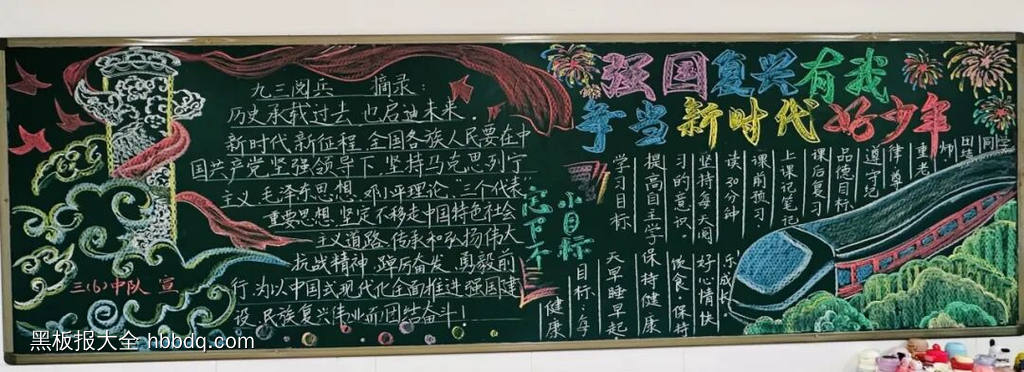 强国复兴有我
争当新时代好少年
九三阅兵 摘录：
历史承载过去，也启迪未来。
新时代新征程，全国各族人民要在中
国共产党坚强领导下，坚持马克思列宁
主义、毛泽东思想、邓小平理论、“三个代表”
重要思想，坚定不移走中国特色社会
主义道路，传承和弘扬伟大
抗战精神，踔厉奋发、勇毅前
行，为以中国式现代化全面推进强国建
设、民族复兴伟业而团结奋斗！
三(6)中队 宣
定下个
小目标
学习目标
提高自主学
习的意识。
坚持每天阅
读30分钟
课前预习、
上课记笔记
课后复习
品德目标
遵守纪
律尊
重老
师
团结
同学
健康
目标：每
天早睡早起，
保持健康
饮食。保持
好心情快
乐成长。
黑板报大全 hbbdq.com